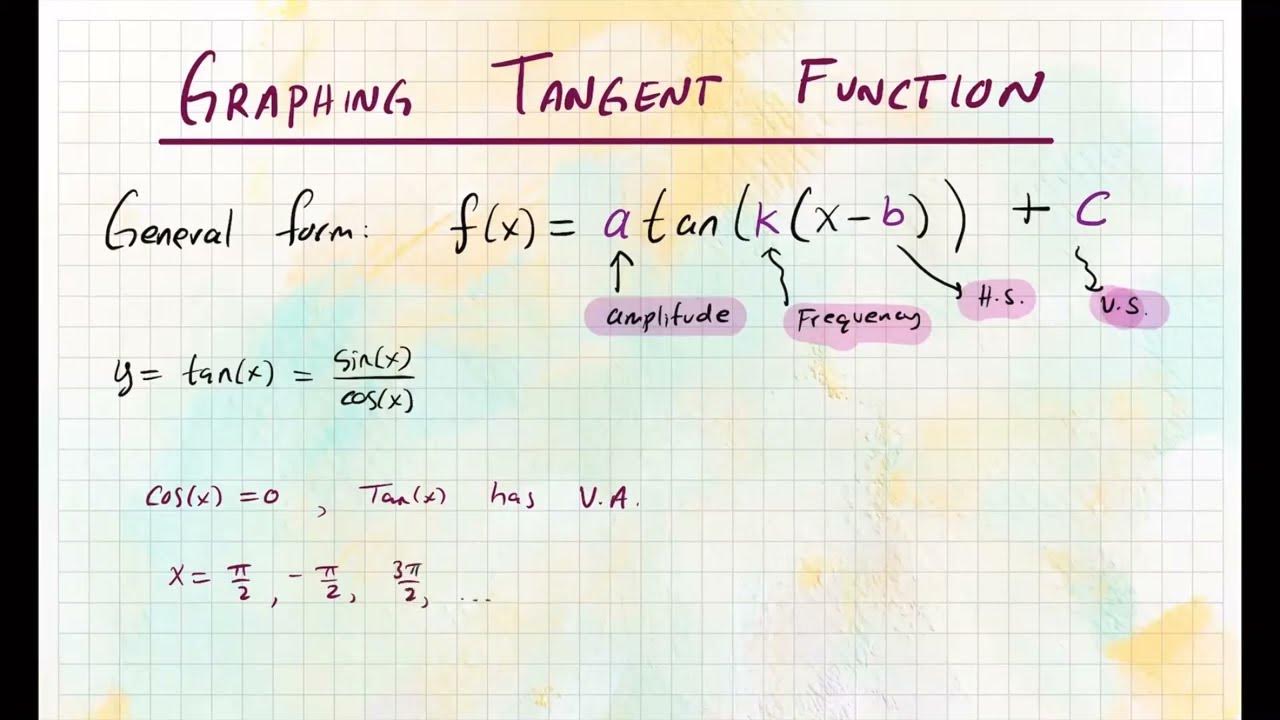 GRAPHING TANGENT FUNCTION
General form: f(x) = a tan(k(x-b)) + C
amplitude Frequency H.S. V.S.
y = tan(x) = sin(x)/cos(x)
cos(x) = 0 , Tan(x) has V.A.
x = π/2 , -π/2 , 3π/2 , ...